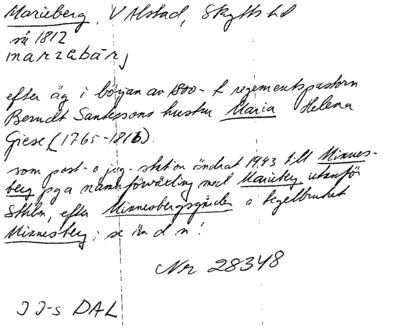 Marieberg, V Alstad, Skytts hd
så 1812
marzebär,
efter äg i början av 1800-t regementspastorn
Berndt Santessons hustru Maria Helena
Giese (1765-1816).
som post- o jvg-station ändrat 1943 till Minnes-
berg pga namnförväxling med Marieberg utanför
Sthlm, efter Minnesbergsgården o tegelbruket
Minnesberg; se än d n!
Nr 28348
JJ-s DAL